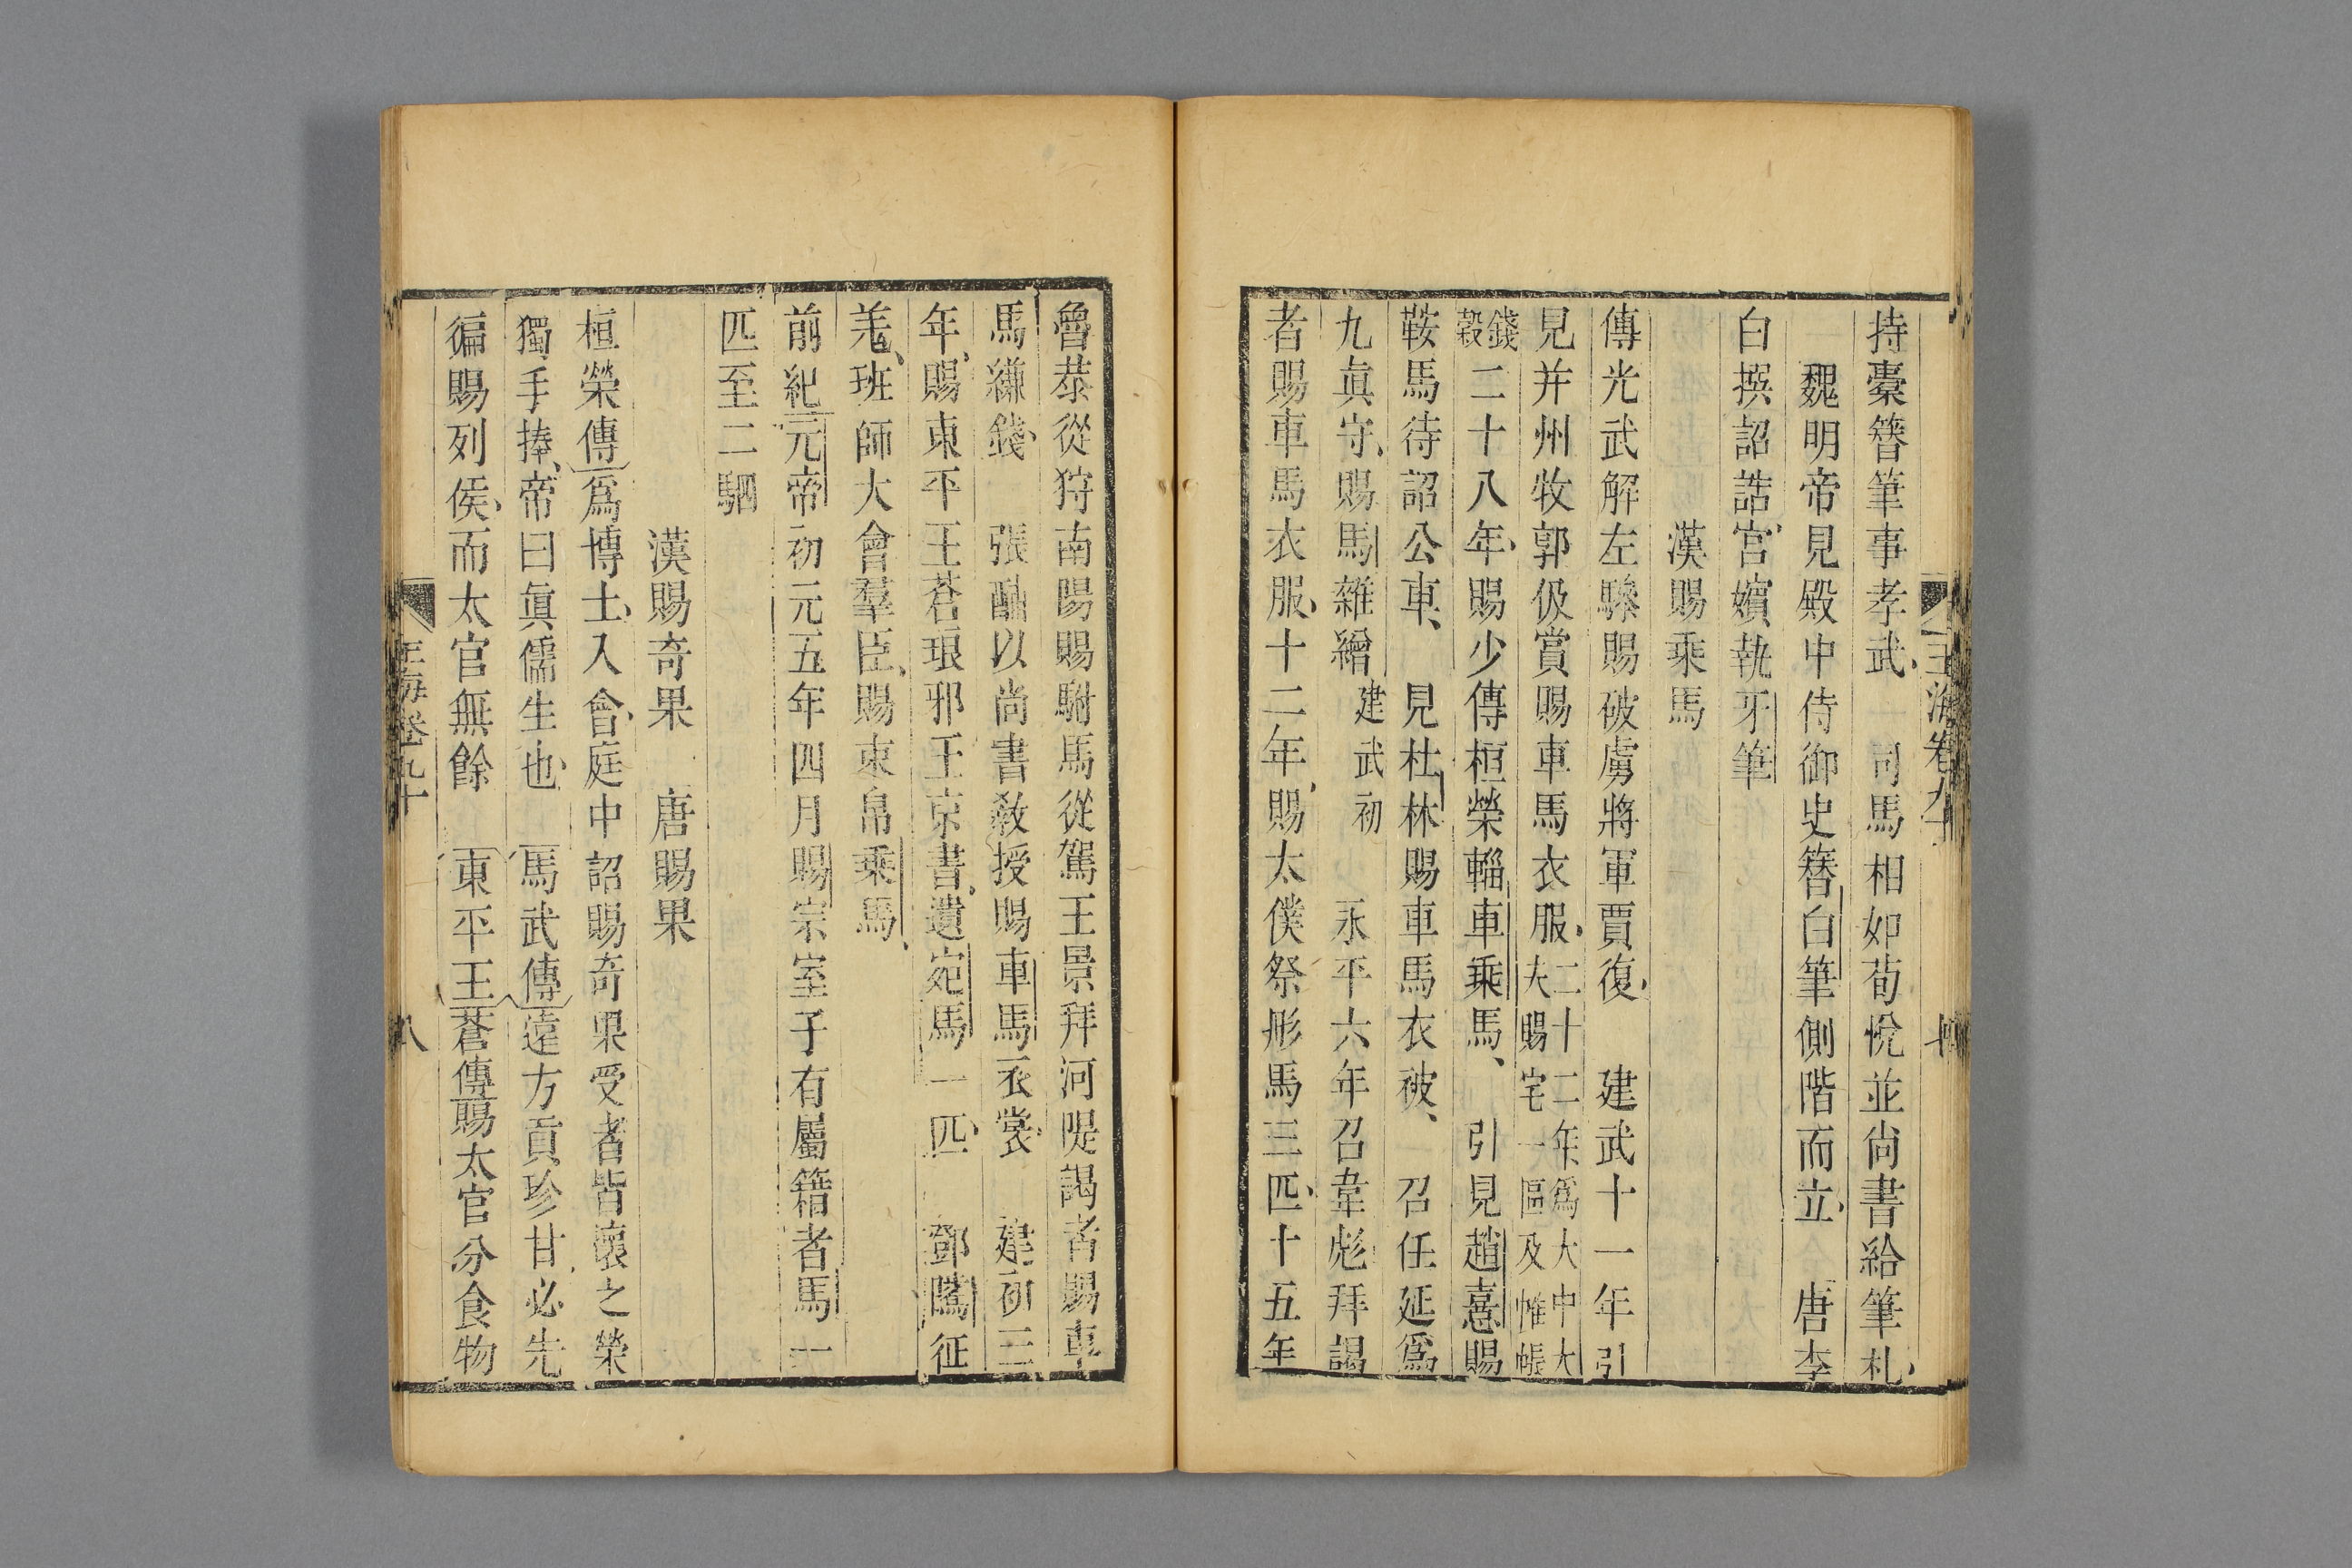 玉海卷九十
持橐簪筆事孝武　司馬相如荀悅並尚書給筆札
魏明帝見殿中侍御史簪白筆側階而立　唐李
白撰詔誥宮嬪執牙筆
漢賜乘馬
傳光武解左驂賜破虜將軍賈復　建武十一年引
見并州牧郭伋賞賜車馬衣服二十二年爲大中大夫賜宅一區及帷帳
錢穀二十八年賜少傳桓榮輜車乘馬　引見趙憙賜
鞍馬待詔公車　見杜林賜車馬衣被　召任延爲
九眞守賜馬雜繒建武初　永平六年召韋彪拜謁
者賜車馬衣服十二年賜太僕祭肜馬三匹十五年
魯恭從狩南陽賜駙馬從駕王景拜河隄謁者賜車
馬縑錢　張酺以尚書教授賜車馬衣裳　建初三
年賜東平王蒼琅邪王京書遺宛馬一匹　鄧騭征
羌班師大會羣臣賜束帛乘馬
前紀元帝初元五年四月賜宗室子有屬籍者馬一
匹至二駟
漢賜奇果　唐賜果
桓榮傳爲博士入會庭中詔賜奇果受者皆懷之榮
獨手捧帝曰眞儒生也　馬武傳遠方貢珍甘必先
徧賜列侯而太官無餘　東平王蒼傳賜太官分食物
玉海卷九十
八